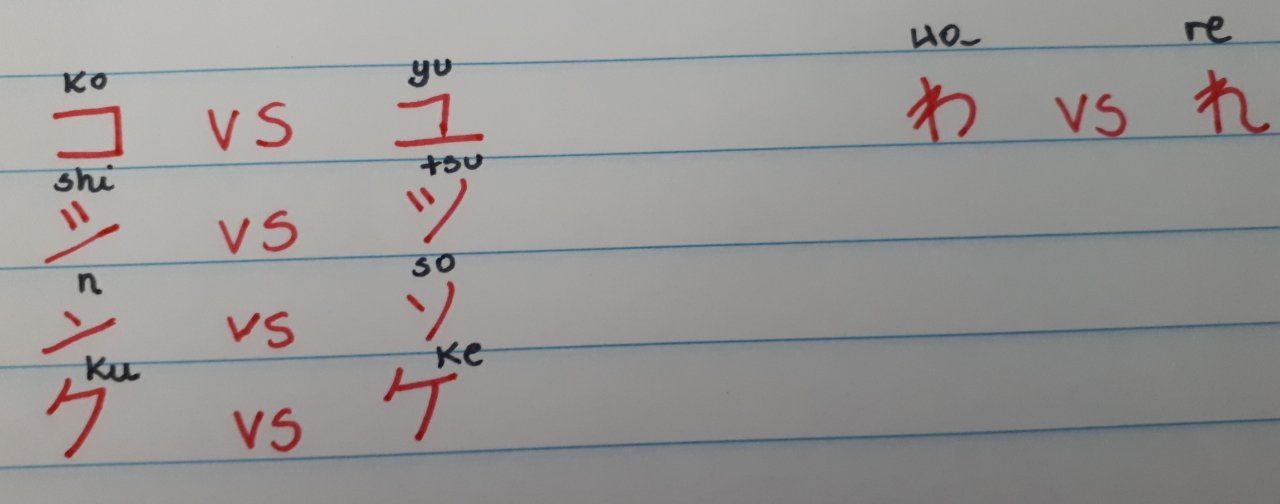 ko yu
コ vs ユ
shi tsu
シ vs ツ
n so
ン vs ソ
ku ke
ク vs ケ
re
わ vs れ